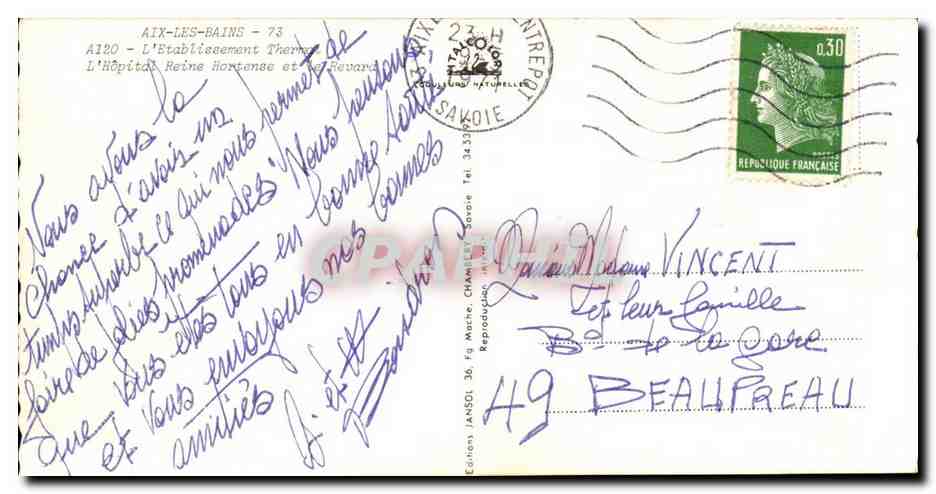 AIX-LES-BAINS - 73
A120 - L'Etablissement Thermal
L'Hôpital Reine Hortense et le Revard
Nous avons la
chance d'avoir un
temps superbe ce qui nous permet de
faire de jolies promenades. Nous pensons
que vous êtes tous en bonne santé
et vous envoyons nos bonnes
amitiés
et
Editions JANSOL 36, Fg Mache, CHAMBERY Savoie Tel. 34.53.9
Reproduction
AIX ENTREPOT
23 H
SAVOIE
COULEURS NATURELLES
0,30
POSTES
REPUBLIQUE FRANÇAISE
CPARAMA
Madame VINCENT
et leur famille
Bd de la gare
49 BEAUPREAU